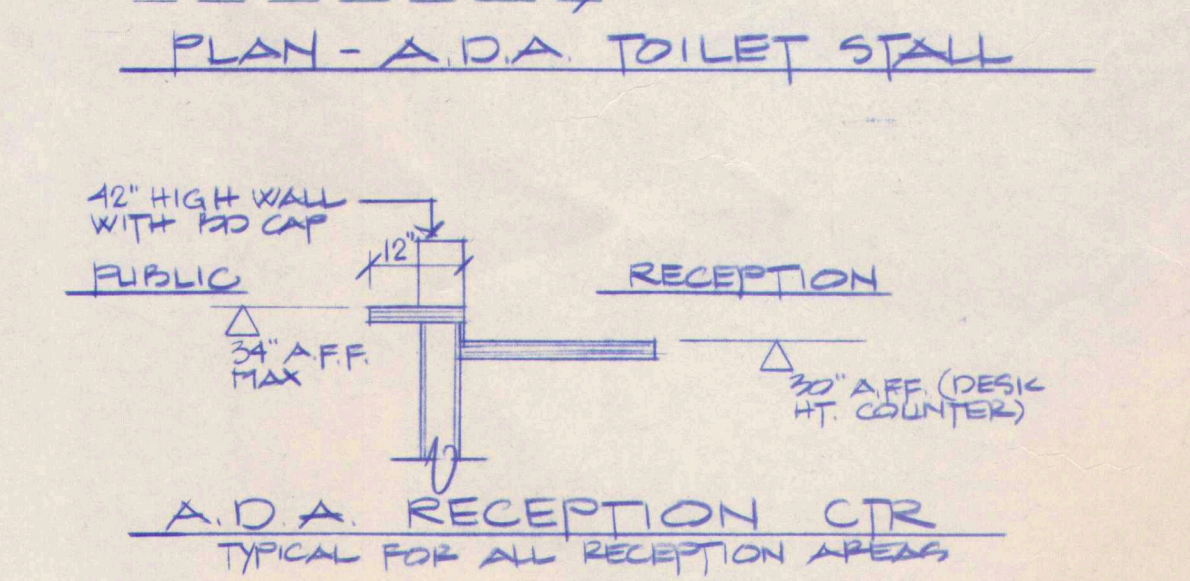 PLAN - A.D.A. TOILET STALL
42" HIGH WALL
WITH BD CAP
12"
PUBLIC
RECEPTION
34" A.F.F.
MAX
30" A.F.F. (DESK
HT. COUNTER)
A.D.A. RECEPTION CTR
TYPICAL FOR ALL RECEPTION AREAS